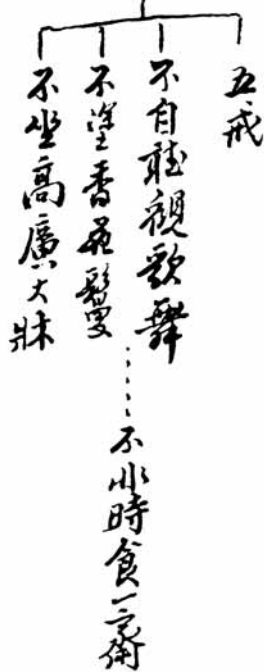 五戒
不自聽觀歌舞
不塗香花鬘
不坐高廣大牀
不非時食一齋